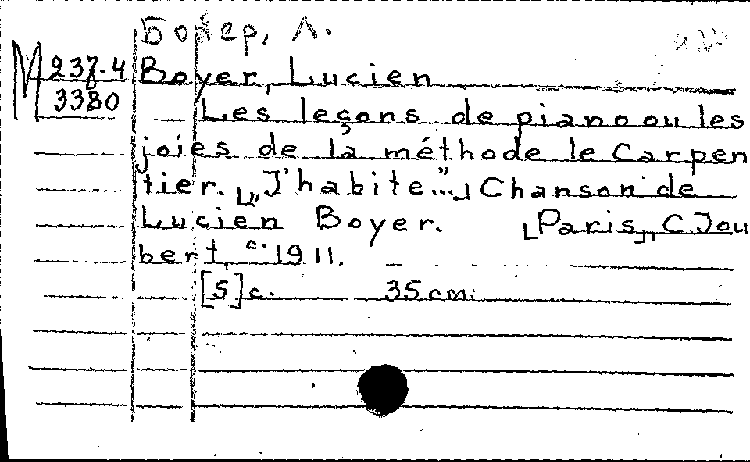 Бойер, Л.
М 237-4
3380
Boyer, Lucien
Les leçons de piano ou les
joies de la méthode le Carpen
tier. [„J'habite..."] Chanson de
Lucien Boyer. [Paris], C Jou
bert, c. 1911.
[5] c. 35 cm.